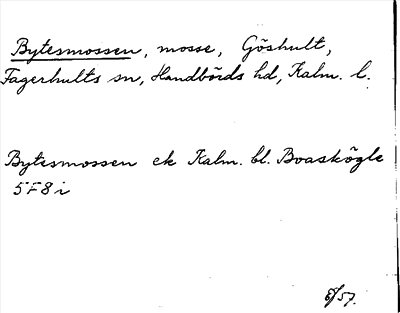 Bytesmossen, mosse, Göshult,
Fagerhults sn, Handbörds hd, Kalm. l.
Bytesmossen ek Kalm. bl. Boaskögle
5F8i
8/57.